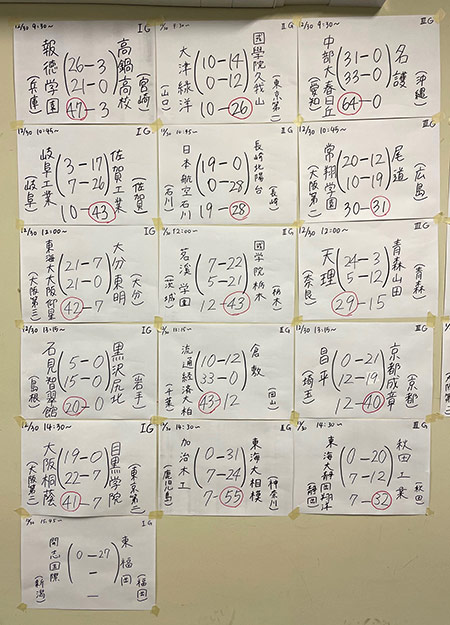 12/30 9:30〜 ⅠG
報徳学園 (兵庫) 26-3 高鍋高校 (宮崎)
21-0
47-3
12/30 9:30〜 ⅡG
大津緑洋 (山口) 10-14 國學院久我山 (東京第一)
0-12
10-26
12/30 9:30〜 ⅢG
中部大春日丘 (愛知) 31-0 名護 (沖縄)
33-0
64-0
12/30 10:45〜 ⅠG
岐阜工業 (岐阜) 3-17 佐賀工業 (佐賀)
7-26
10-43
12/30 10:45〜 ⅡG
日本航空石川 (石川) 19-0 長崎北陽台 (長崎)
0-28
19-28
12/30 10:45〜 ⅢG
常翔学園 (大阪第一) 20-12 尾道 (広島)
10-19
30-31
12/30 12:00〜 ⅠG
東海大大阪仰星 (大阪第三) 21-7 大分東明 (大分)
21-0
42-7
12/30 12:00〜 ⅡG
茗溪学園 (茨城) 7-22 國學院栃木 (栃木)
5-21
12-43
12/30 12:00〜 ⅢG
天理 (奈良) 24-3 青森山田 (青森)
5-12
29-15
12/30 13:15〜 ⅠG
石見智翠館 (島根) 5-0 黒沢尻北 (岩手)
15-0
20-0
12/30 13:15〜 ⅡG
流通経済大柏 (千葉) 10-12 倉敷 (岡山)
33-0
43-12
12/30 13:15〜 ⅢG
昌平 (埼玉) 0-21 京都成章 (京都)
12-19
12-40
12/30 14:30〜 ⅠG
大阪桐蔭 (大阪第二) 19-0 目黒学院 (東京第二)
22-7
41-7
12/30 14:30〜 ⅡG
加治木工 (鹿児島) 0-31 東海大相模 (神奈川)
7-24
7-55
12/30 14:30〜 ⅢG
東海大静岡翔洋 (静岡) 0-20 秋田工業 (秋田)
7-12
7-32
12/30 15:45〜 ⅠG
開志国際 (新潟) 0-27 東福岡 (福岡)
-
-